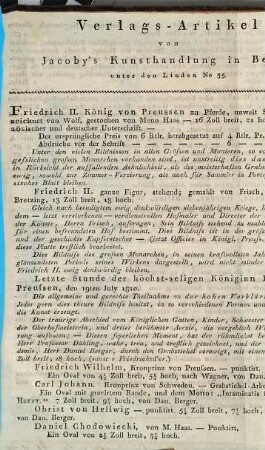 Verlags-Artikel
von
Jacoby's Kunsthandlung in Be
unter den Linden No 35.
Friedrich II. König von Preussen zu Pferde, unweit S
zeichnet von Wolf, gestochen von Meno Haas — 16 Zoll breit, 21 ho
zösischer und deutscher Unterschrift. —
Der ursprüngliche Preis von 6 Rtlr. herabgesetzt auf 4 Rtlr. Pr.
Abdrücke vor der Schrift
Unter den vielen Bildnissen in allen Größen und Manieren, so v
gefeslichen großen Menschen vorhanden sind, ist unstreitig dies da
in Rücksicht der auffallenden Aehnlichkeit, als das meisterhafte Grabst
ewig, sowohl zur Zimmer-Verzierung, als auch für Sammler in Porte
risches Blatt bleiben.
Friedrich II. ganze Figur, stehend; gemalt von Frisch,
Bretzing, 13 Zoll breit, 18 hoch.
Gleich nach beendigtem ewig denkwürdigen siebenjährigen Kriege,
dem — letzt verstorbenen — verdienstvollen Hofmaler und Director der
der Künste, Herrn Frisch, aufgetragen, dies Bildniß stehend in
für einen befreundeten Hof bestimmt. Dies Bildniß ist in der größt
und der geschickte Kupferstecher — Officier in Königl. Preuß.
diese Platte trefflich bearbeitet.
Dies Bildniß des großen Monarchen, in seinen kraftvollsten Jah
glänzendsten Periode seines Wirkens dargestellt, wird nicht minder
Friedrich II. ewig denkwürdig bleiben.
Letzte Stunde der höchst-seligen Königinn
Preussen, den 19ten July 1810.
Die allgemeine und gerechte Theilnahme an der hohen Verklär
Jeder gern dies theure Bildniß besitzt, in so verschiedenen Formen und
die Kunst erzeugt.
Der traurige Abschied vom Königlichen Gatten, Kinder, Schwester
der Oberhofmeisterin, und dreier berühmter Aerzte, die vergeblich W
rung aufboten — Diesen feyerlichen Moment, hat der rühmlichst beka
Herr Professor Dähling, wahr, treu, und trefflich gezeichnet, und der
demie, Herr Daniel Berger, durch den Grabstichel verewigt, mit ein
Zoll breit, 18 hoch,
Friedrich Wilhelm, Kronprinz von Preußen. — punktirt
Ein Oval von 4½ Zoll breit, 5½ hoch, nach Wagner, von Dan.
Carl Johann. Kronprinz von Schweden. — Grabstichel-Arbe
Ein Oval mit gravirtem Rande, und dem Motto: „Intaminatis f
Horst." 7 Zoll breit, 9½ hoch, von Dan. Berger.
Obrist von Hellwig — punktirt, 5½ Zoll breit, 7½ hoch,
von Dan. Berger.
Daniel Chodowiecki, von M. Haas. — Punktirt
Ein Oval von 2½ Zoll breit, 3½ hoch.